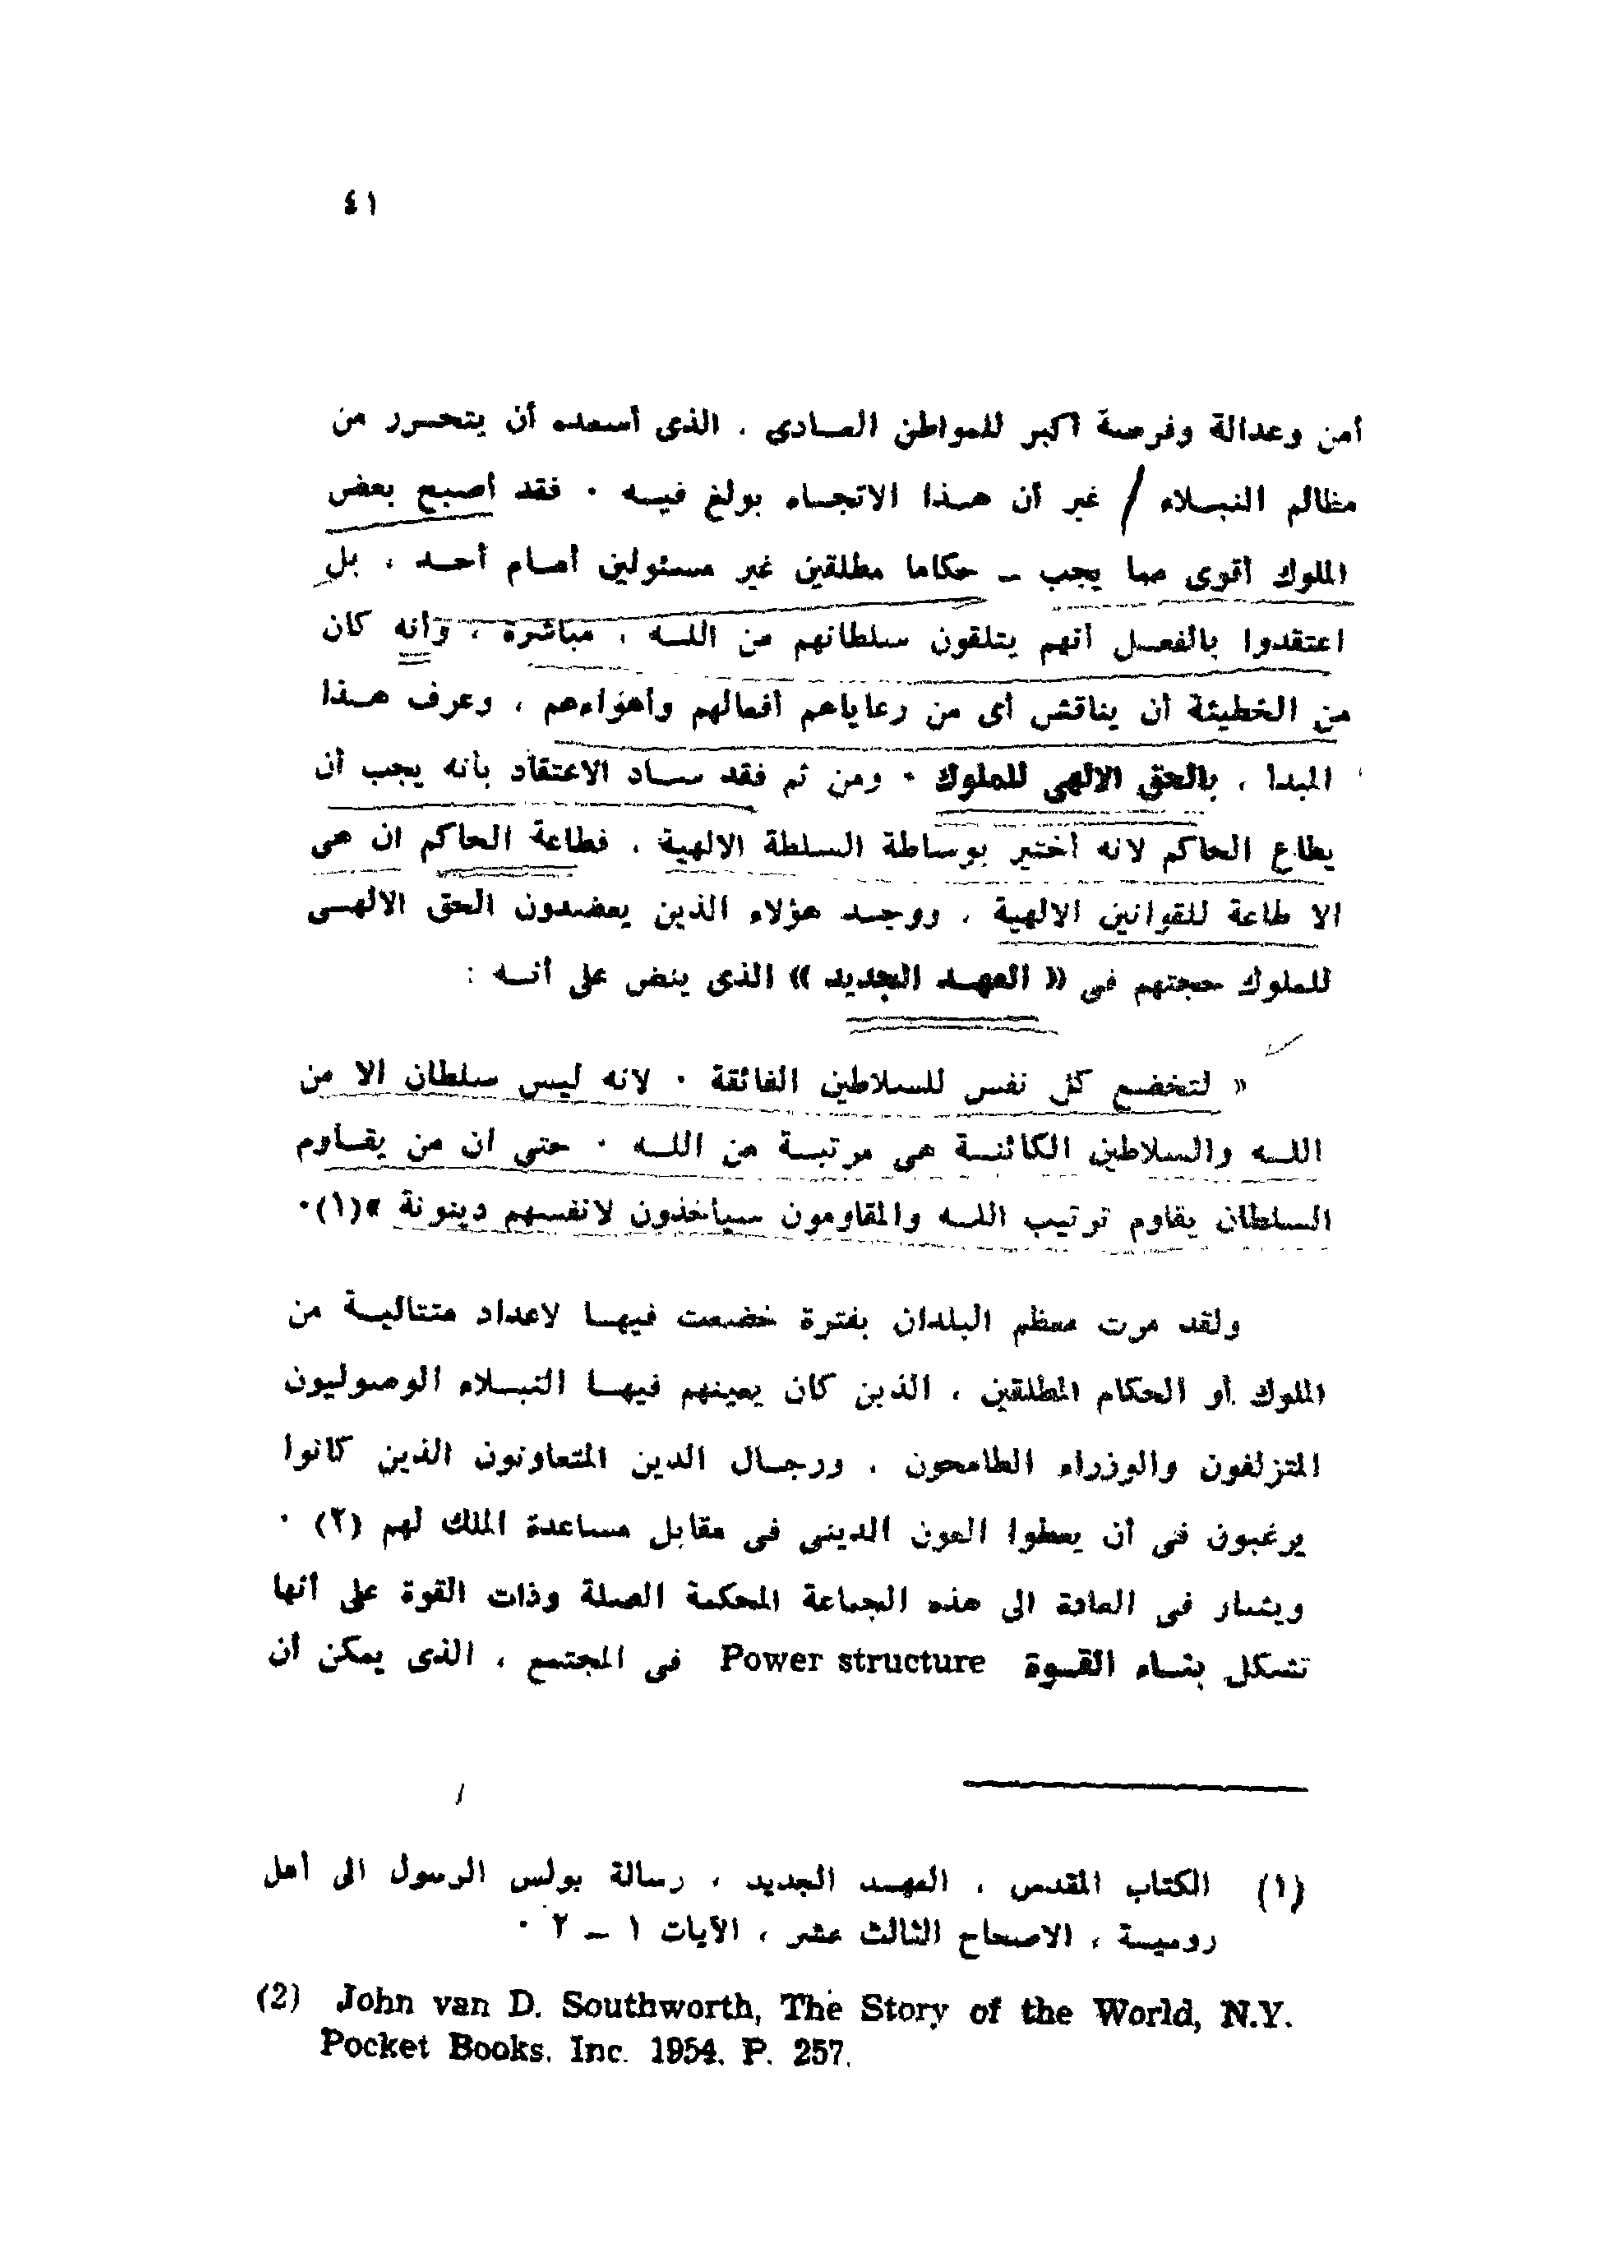 ٤١
أمن وعدالة وفرصة أكبر للمواطن العادى ، الذى أسعده أن يتحرر من
مظالم النبلاء / غير أن هذا الاتجاه بولغ فيه ٠ فقد أصبح بعض
الملوك أقوى مما يجب ــ حكاما مطلقين غير مسئولين أمام أحد ، بل
اعتقدوا بالفعل أنهم يتلقون سلطانهم من الله ، مباشرة ، وأنه كان
من الخطيئة أن يناقش أى من رعاياهم أفعالهم وأهواءهم ، وعرف هذا
المبدا ، بالحق الالهى للملوك ٠ ومن ثم فقد ساد الاعتقاد بأنه يجب أن
يطاع الحاكم لانه أختير بوساطة السلطة الالهية ، فطاعة الحاكم ان هى
الا طاعة للقوانين الالهية ، ووجد هؤلاء الذين يعضدون الحق الالهى
للملوك حجتهم فى « العهد الجديد » الذى ينص على أنه :
« لتخضع كل نفس للسلاطين الفائقة ٠ لانه ليس سلطان الا من
الله والسلاطين الكائنة هى مرتبة من الله ٠ حتى ان من يقاوم
السلطان يقاوم ترتيب الله والمقاومون سيأخذون لانفسهم دينونة »(١)٠
ولقد مرت معظم البلدان بفترة خضعت فيها لاعداد متتالية من
الملوك أو الحكام المطلقين ، الذين كان يعينهم فيها النبلاء الوصوليون
المتزلفون والوزراء الطامحون ، ورجال الدين المتعاونون الذين كانوا
يرغبون فى أن يعطوا العون الدينى فى مقابل مساعدة الملك لهم (٢) ٠
ويشار فى العادة الى هذه الجماعة المحكمة الصلة وذات القوة على أنها
تشكل بناء القوة Power structure فى المجتمع ، الذى يمكن أن
(١) الكتاب المقدس ، العهد الجديد ، رسالة بولس الرسول الى أهل
رومية ، الاصحاح الثالث عشر ، الآيات ١ ــ ٢ ٠
(2) John van D. Southworth, The Story of the World, N.Y.
Pocket Books. Inc. 1954. P. 257.